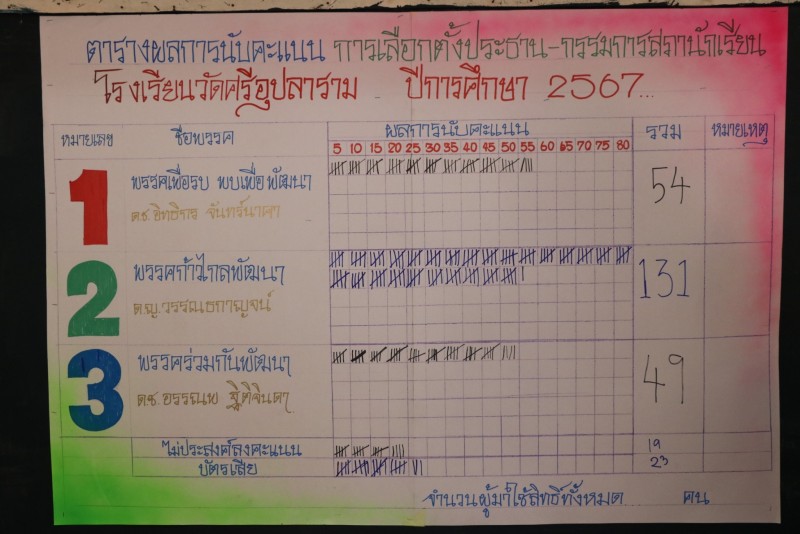 ตารางผลการนับคะแนน การเลือกตั้งประธาน-กรรมการสภานักเรียน
โรงเรียนวัดศรีอุปลาราม ปีการศึกษา 2567...
หมายเลข ชื่อพรรค ผลการนับคะแนน รวม หมายเหตุ
5 10 15 20 25 30 35 40 45 50 55 60 65 70 75 80
1 พรรคเพื่อรบ พบเพื่อพัฒนา 54
ด.ช.อิทธิกร จันทร์นาคา
2 พรรคก้าวไกลพัฒนา 131
ด.ญ.วรรณธกาญจน์
3 พรรคร่วมกันพัฒนา 49
ด.ช.อรรณพ ฐิติจินดา
ไม่ประสงค์ลงคะแนน 19
บัตรเสีย 23
จำนวนผู้มาใช้สิทธิ์ทั้งหมด คน